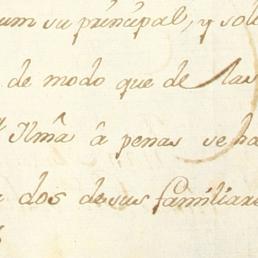 um su principal, y sol
de modo que de las
Ilmâ â penas se ha
dos de sus familiare